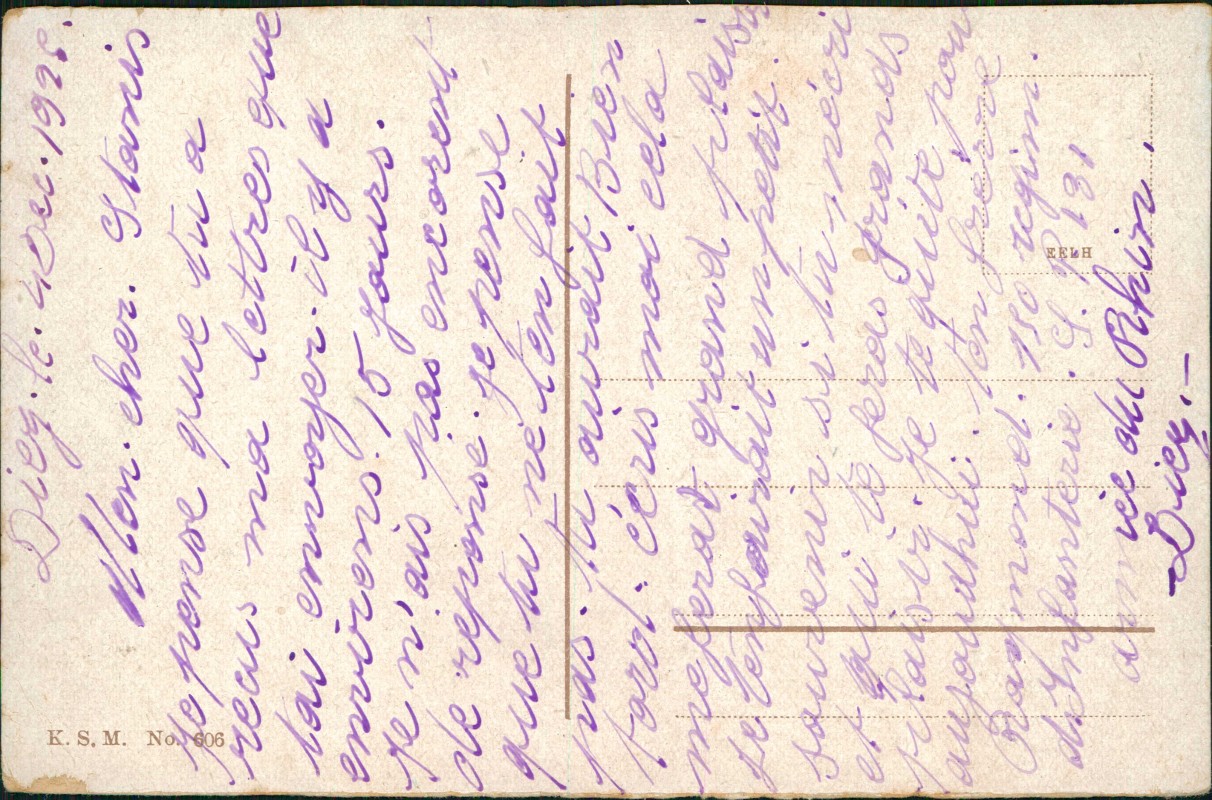 Diez. le. 4 Dec. 1925.
Mon. cher. Stanis
je pense que tu a
recus ma lettres que
tai envoyer. il y a
envirens. 15 jours.
je n'ais pas encorent
de reponse. je pense
que tu ne l'en fait
pas. tu aurait Bien
tort. écris moi cela
meferat grand plaisir
je tenfaurait un petit.
souvenir si tu, mécri
et qui te feras grands
plaisir je te quite pour
aujourdhui. ton frère
Raymond. 150 regim.
d'Infanterie. S. P 131
armée du Rhin.
-Diez.-
K. S. M. No. 606
EELH